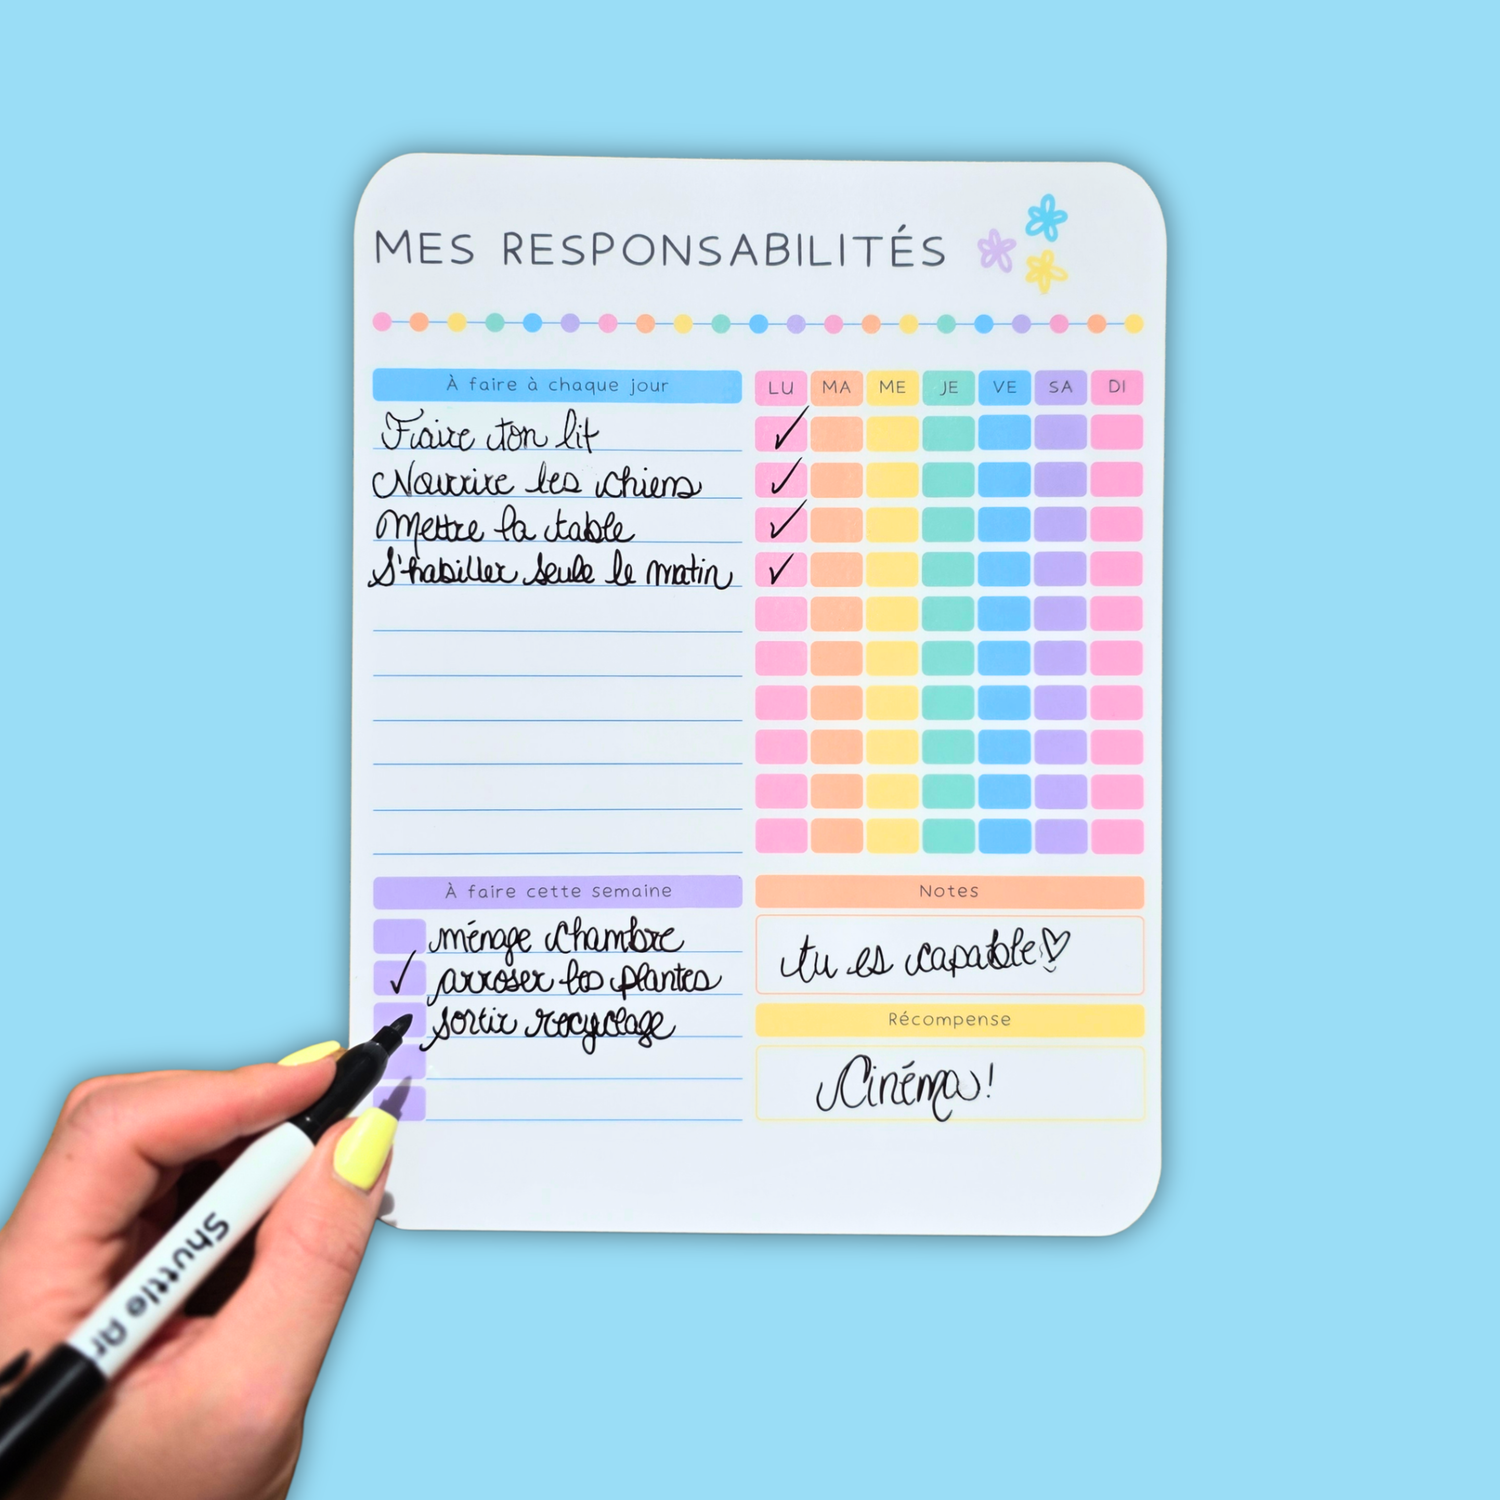 MES RESPONSABILITÉS
À faire à chaque jour
LU MA ME JE VE SA DI
Faire ton lit
Nourrire les chiens
Mettre la table
S'habiller seule le matin
À faire cette semaine
ménage chambre
arroser les plantes
sortir recyclage
Notes
tu es capable!
Récompense
Cinéma!
Shuttle Ar